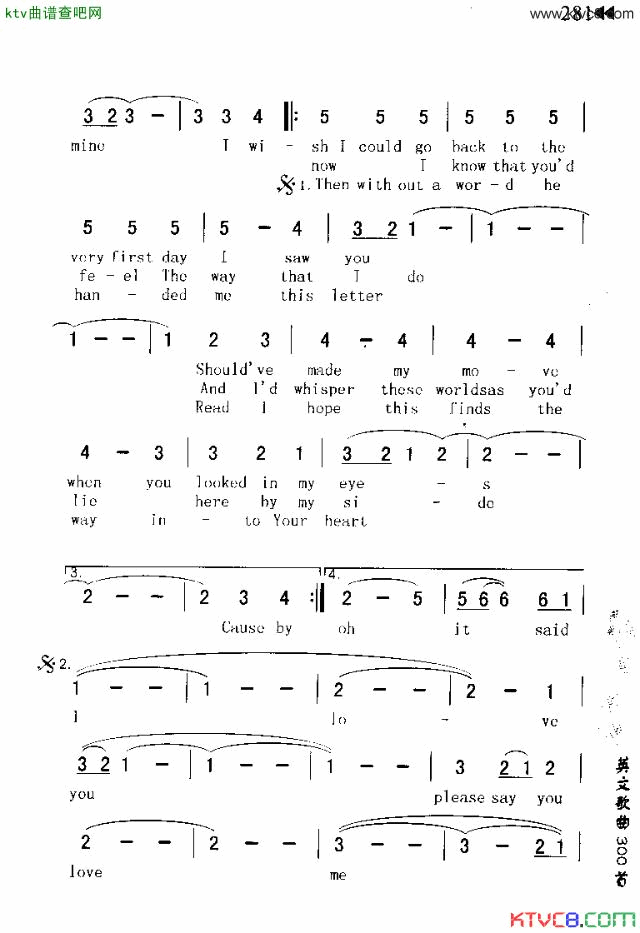 ktv曲谱查吧网
www.ktvc8.com
281
3 2 3 - | 3 3 4 ‖: 5 5 5 | 5 5 5 |
mine I wi - sh I could go back to the
now I know that you'd
1.Then with out a wor - d he
5 5 5 | 5 - 4 | 3 2 1 - | 1 - - |
very first day I saw you
fe - el The way that I do
han - ded me this letter
1 - - | 1 2 3 | 4 - 4 | 4 - 4
Should've made my mo - ve
And I'd whisper these worldsas you'd
Read I hope this finds the
4 - 3 | 3 2 1 | 3 2 1 2 | 2 - - |
when you looked in my eye - s
lie here by my si - de
way in - to Your heart
3. 4.
2 - - | 2 3 4 :‖ 2 - 5 | 5 6 6 6 1 |
Cause by oh it said
2.
1 - - | 1 - - | 2 - - | 2 - 1 |
I lo - ve
3 2 1 - | 1 - - | 1 - - | 3 2 1 2 |
you please say you
2 - - | 2 - - | 3 - - | 3 - 2 1 |
love me
英文歌曲300首
KTVC8.COM